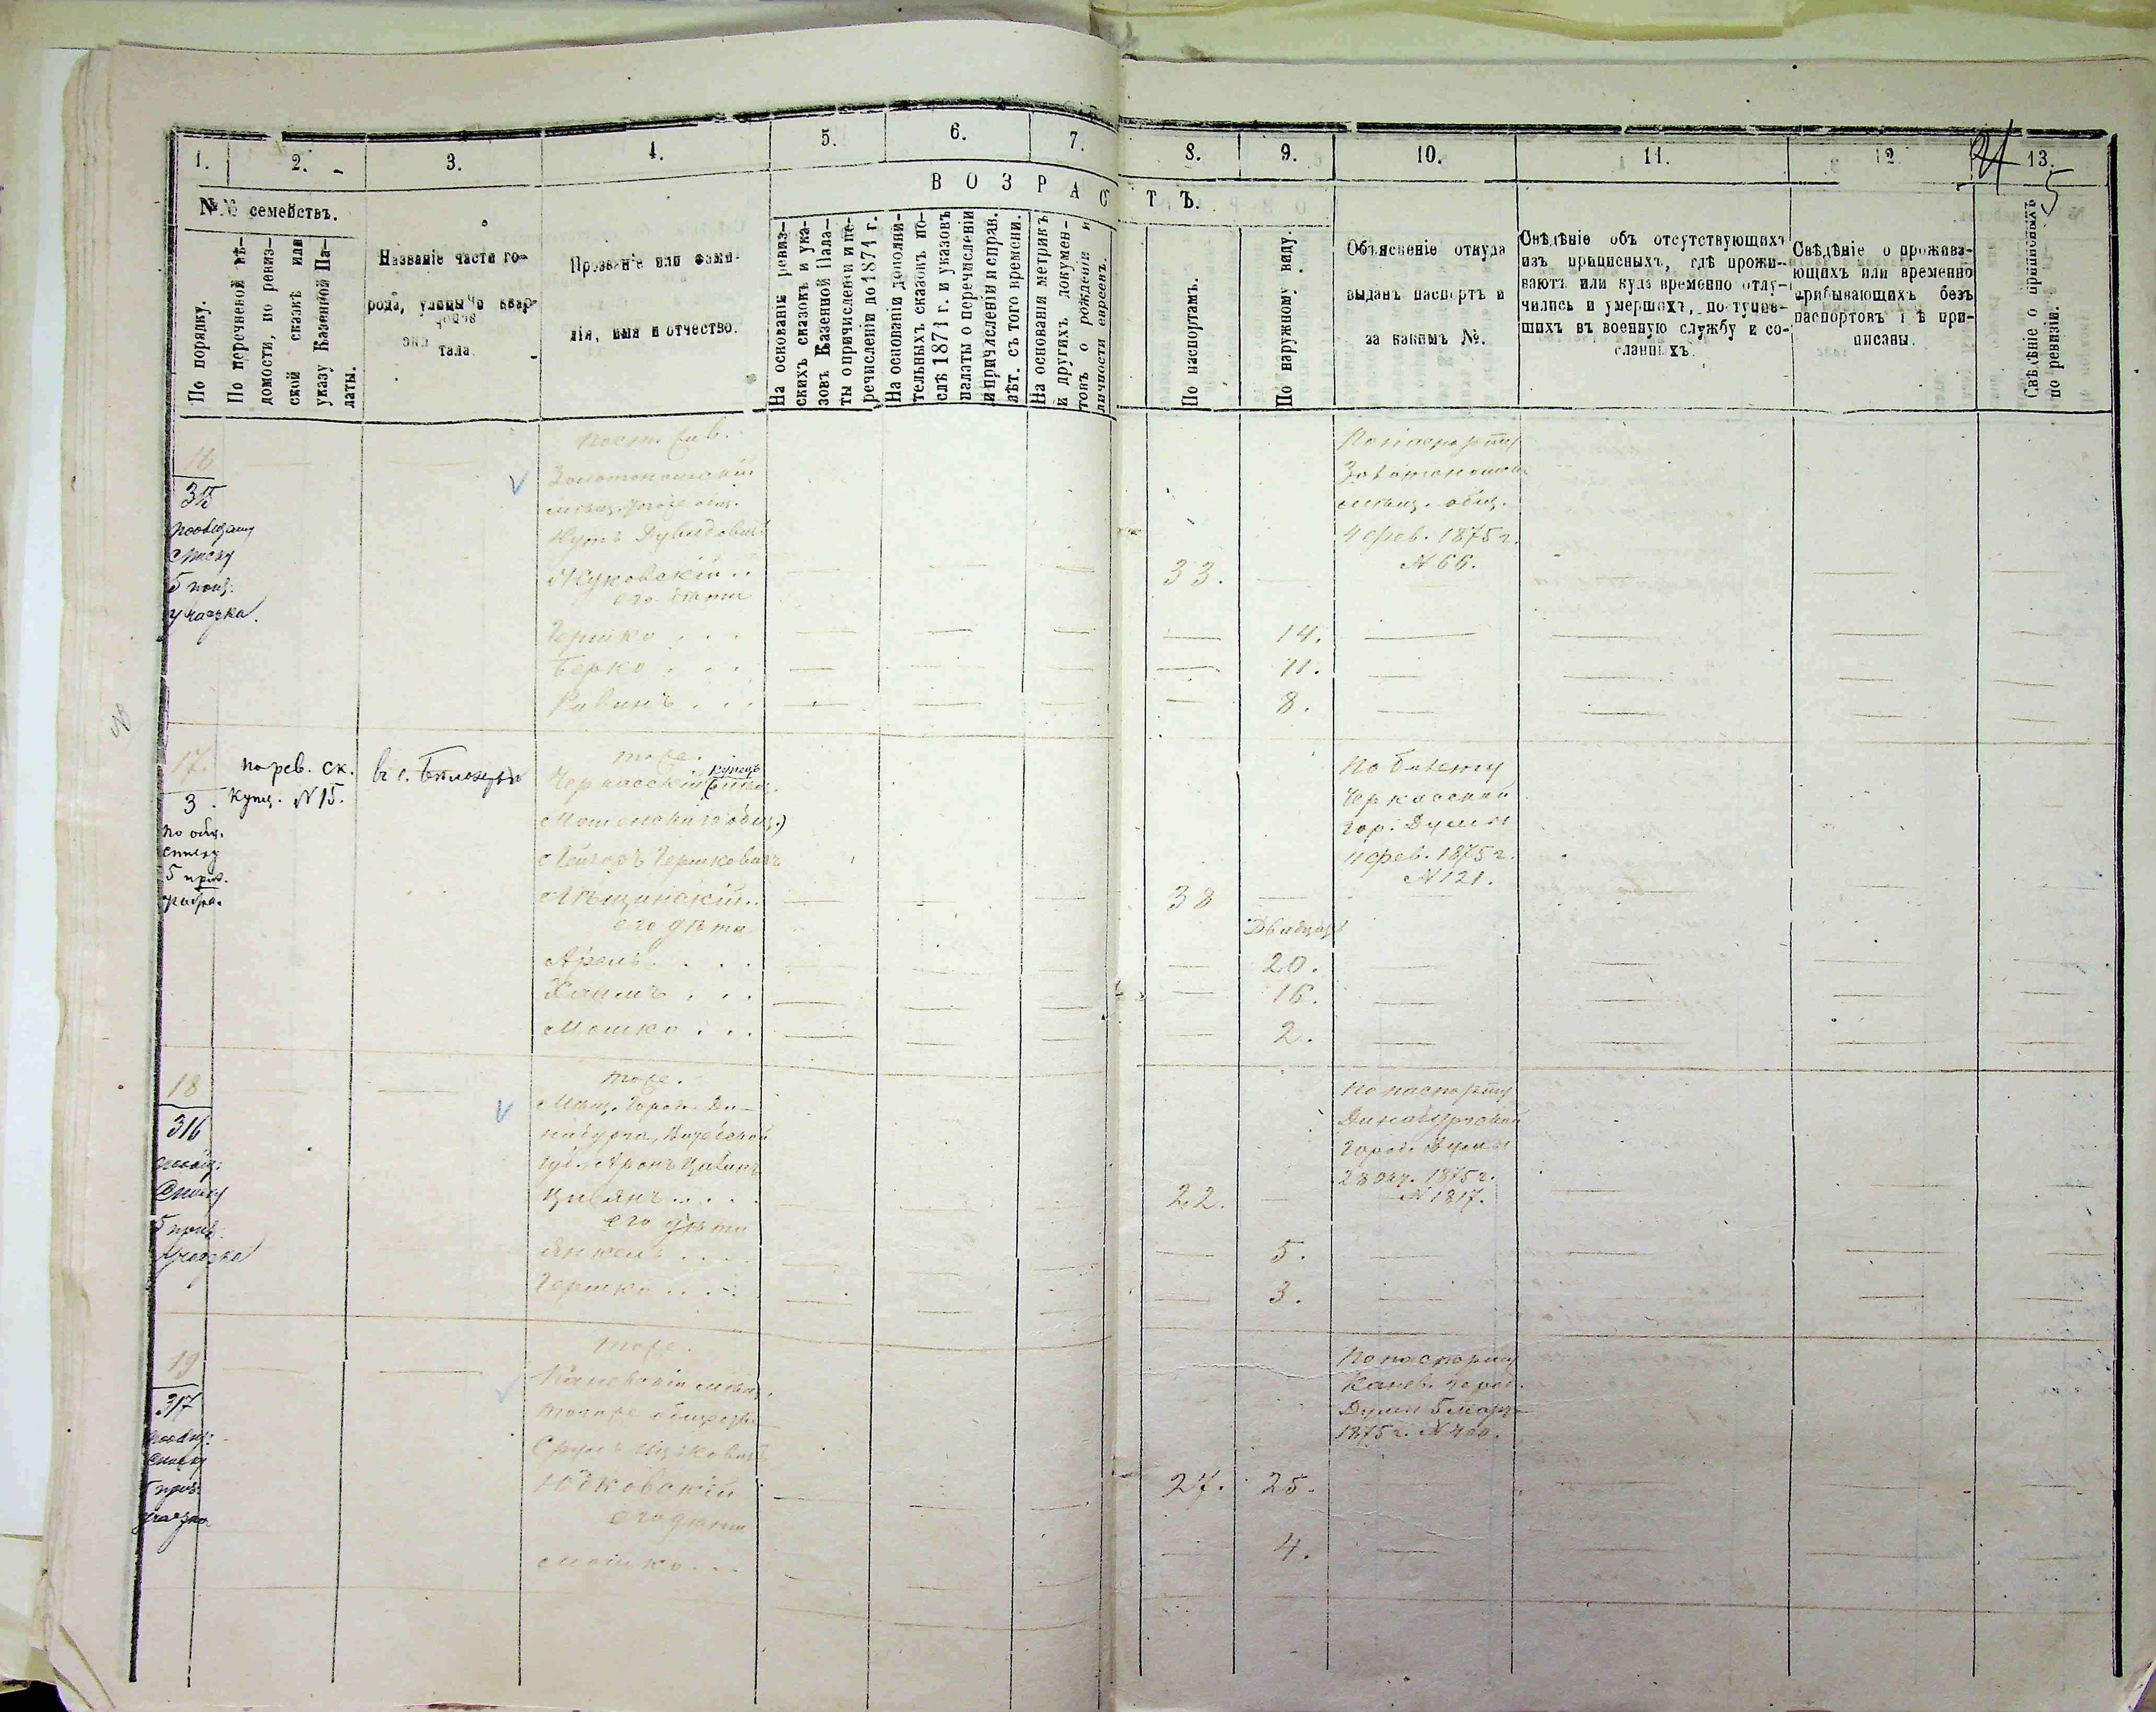 1. 2. 3. 4. 5. 6. 7. 8. 9. 10. 11. 12 13.
5
№№ семействъ.
ВОЗРАСТЪ.
По порядку.
По перечневой вѣ-
домости, по ревиз-
ской сказкѣ или
указу Казенной Па-
латы.
Названіе части го-
рода, улицы и квар-
тала
Прозваніе или фами-
лія, имя и отчество.
На основаніи ревиз-
скихъ сказокъ и ука-
зовъ Казенной Пала-
ты о причисленіи и пе-
речисленіи до 1871 г.
На основаніи дополни-
тельныхъ сказокъ по-
слѣ 1871 г. и указовъ
палаты о перечисленіи
и причисленіи и справ.
лѣт. съ того времени.
На основаніи метрикъ
и другихъ докумен-
товъ о рожденіи и
личности евреевъ.
По паспортамъ.
По наружному виду.
Объясненіе откуда
выданъ паспортъ и
за какимъ №.
Свѣдѣніе объ отсутствующихъ
изъ приписныхъ, гдѣ прожи-
ваютъ или куда временно отлу-
чились и умершихъ, поступив-
шихъ въ военную службу и со-
сланныхъ.
Свѣдѣніе о прожива-
ющихъ или временно
прибывающихъ безъ
паспортовъ гдѣ при-
писаны.
Свѣдѣніе о приписныхъ
по ревизіи.
16
315
списку
5
участка.
Золотоношскій
Нутъ Дувидовичъ
Жуковскій..
его дѣти
Гершко . . .
Берко . . .
Рувинъ . . .
33.
14.
11.
8.
По паспорту
Золотоношск.
мѣщ. общ.
4 фев. 1875 г.
№ 66.
17.
3.
по общ.
списку
5
по рев. ск.
купц. №15.
въ с.
тоже.
купецъ
Черкасскій
Лейзоръ Гершковичъ
его дѣти
Арель . . .
Хаимъ . . .
Мошко . . .
38
Двадцать
20.
16.
2.
По билету
Черкасской
Гор. Думы
11 фев. 1875 г.
№ 121.
18
316
списку
5
участка
тоже.
Мѣщ. Город. Ди-
набурга, Витебской
губ. Аронъ
его дѣти
Янкель . . .
Гершко . . .
22.
5.
3.
По паспорту
Динабургской
Город. Думы
28 1875 г.
№ 1817.
19
317
списку
тоже.
Каневскій мѣщ.
Сруль Ицковичъ
Юдковскій
его дѣти
Мошко . . .
27. 25.
4.
По паспорту
Канев. Город.
Думы 5 марта
1875 г. № 400.